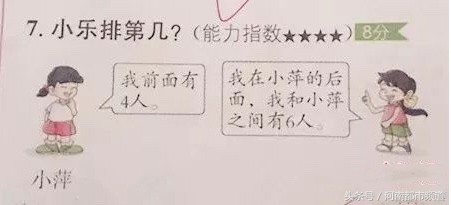 7. 小乐排第几?(能力指数★★★★) 8分
我前面有
4人。
我在小萍的后
面，我和小萍
之间有6人。
小萍
头条号 / 河南都市频道